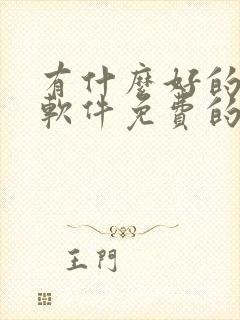 有什麼好的
軟件免費的
王門